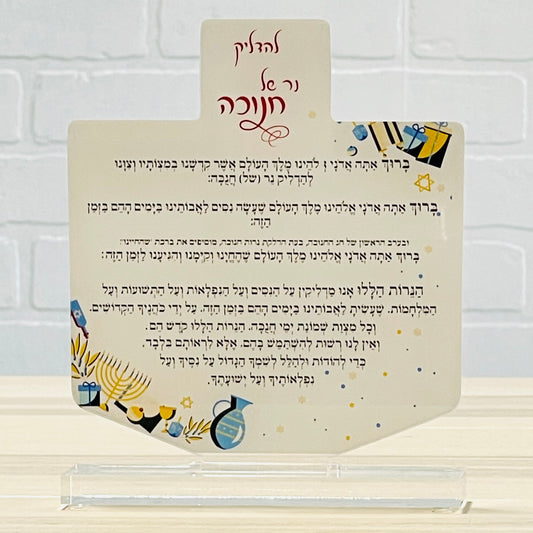 להדליק
נר של
חנוכה
בָּרוּךְ אַתָּה אֲדֹנָי אֱלֹהֵינוּ מֶלֶךְ הָעוֹלָם אֲשֶׁר קִדְּשָׁנוּ בְּמִצְוֹתָיו וְצִוָּנוּ
לְהַדְלִיק נֵר (שֶׁל) חֲנֻכָּה:
בָּרוּךְ אַתָּה אֲדֹנָי אֱלֹהֵינוּ מֶלֶךְ הָעוֹלָם שֶׁעָשָׂה נִסִּים לַאֲבוֹתֵינוּ בַּיָּמִים הָהֵם בַּזְּמַן
הַזֶּה:
ובערב הראשון של חג החנוכה, בעת הדלקת נרות חנוכה, מוסיפים את ברכת 'שהחיינו':
בָּרוּךְ אַתָּה אֲדֹנָי אֱלֹהֵינוּ מֶלֶךְ הָעוֹלָם שֶׁהֶחֱיָנוּ וְקִיְּמָנוּ וְהִגִּיעָנוּ לַזְּמַן הַזֶּה:
הַנֵּרוֹת הַלָּלוּ אָנוּ מַדְלִיקִין עַל הַנִּסִּים וְעַל הַנִּפְלָאוֹת וְעַל הַתְּשׁוּעוֹת וְעַל
הַמִּלְחָמוֹת. שֶׁעָשִׂיתָ לַאֲבוֹתֵינוּ בַּיָּמִים הָהֵם בַּזְּמַן הַזֶּה. עַל יְדֵי כֹּהֲנֶיךָ הַקְּדוֹשִׁים.
וְכָל מִצְוַת שְׁמוֹנַת יְמֵי חֲנֻכָּה. הַנֵּרוֹת הַלָּלוּ קֹדֶשׁ הֵם.
וְאֵין לָנוּ רְשׁוּת לְהִשְׁתַּמֵּשׁ בָּהֶם. אֶלָּא לִרְאוֹתָם בִּלְבַד,
כְּדֵי לְהוֹדוֹת וּלְהַלֵּל לְשִׁמְךָ הַגָּדוֹל עַל נִסֶּיךָ וְעַל
נִפְלְאוֹתֶיךָ וְעַל יְשׁוּעָתֶךָ.